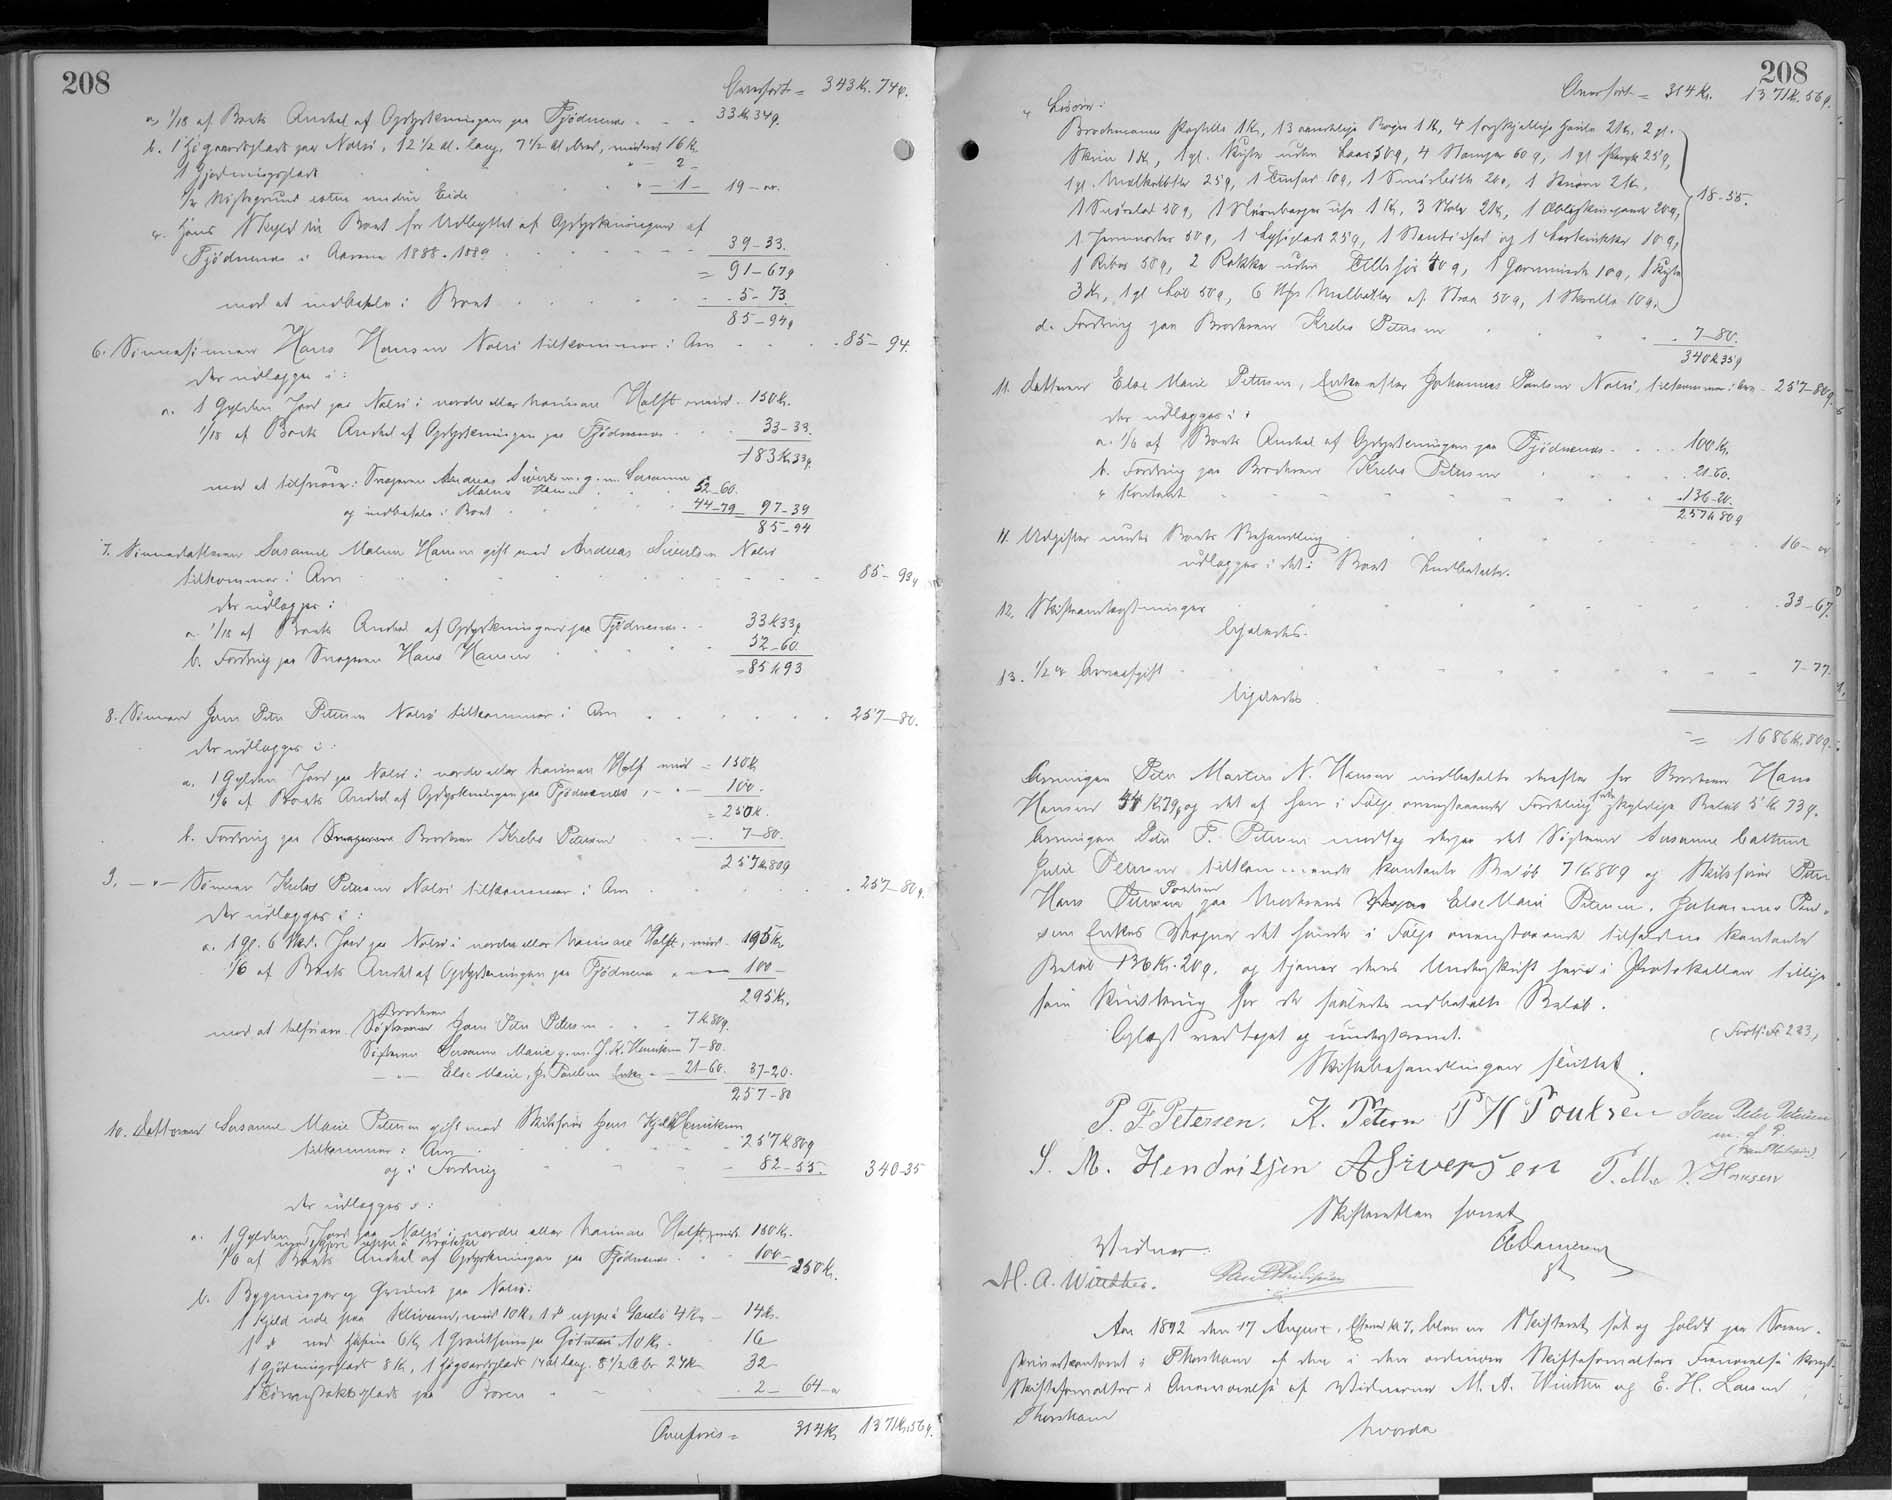 208
Overført = 343 Kr. 74 ø.
a, 1/18 af Boets Andel af Opdyrkningen paa Fjødnenes - - 33 Kr. 34 ø.
b. 1 Høgaardsplads paa Nolsø, 12 1/2 Al. lang, 7 1/2 Al. bred, vurderet 16 Kr.
1 Gjødningsplads " — 2 —
" — 1 — 19 — "
c. Hans Skyld til Boet for Udbyttet af Opdyrkningerne af
Fjødnenes i Aarene 1888-1889 39 — 33.
= 91 — 67 ø
mod at indbetale i Boet 5 — 73
85 — 94 ø
6. Sønnesønnen Hans Hansen Nolsø tilkommer i Arv 85 — 94.
der udlægges i:
a. 1 Gylden Jord paa Nolsø i nordre eller haumare Halft, vurd. 150 Kr.
1/18 af Boets Andel af Opdyrkningen paa Fjødnenes 33 — 33.
183 Kr. 33 ø.
mod at tilsvare: Svogeren Andreas Sivertsen g. m. Susanne
Malene Hansen 52 — 60.
og indbetale i Boet 44 — 79 97 — 39
85 — 94
7. Sønnedatteren Susanne Malene Hansen gift med Andreas Sivertsen Nolsø
tilkommer i Arv 85 — 93 ø
der udlægges:
a. 1/18 af Boets Andel af Opdyrkningen paa Fjødnenes 33 Kr. 33 ø
b. Fordring paa Svogeren Hans Hansen 52 — 60.
= 85 Kr. 93
8. Sønnen Joen Peter Petersen Nolsø tilkommer i Arv 257 — 80.
der udlægges i:
a. 1 Gylden Jord paa Nolsø i nordre eller haumare Halft vurd. = 150 Kr.
1/6 af Boets Andel af Opdyrkningen paa Fjødnenes " — 100 —
= 250 Kr.
b. Fordring paa Broderen Krebs Petersen 7 — 80.
257 Kr. 80 ø
9. — " — Sønnen Krebs Petersen Nolsø tilkommer i Arv 257 — 80 ø.
der udlægges i:
a. 1 Gl. 6 Sk. Jord paa Nolsø i nordre eller haumare Halft, vurd. 195 Kr.
1/6 af Boets Andel af Opdyrkningen paa Fjødnenes " — 100 —
295 Kr.
mod at tilsvare Broderen Joen Peter Petersen 7 Kr. 80 ø.
Søsteren Susanne Marie g. m. J. K. Henriksen 7 — 80.
— " — Else Marie, J. Poulsens Enke — 21 — 60. 37 — 20.
257 — 80
10. Datteren Susanne Marie Petersen gift med Skibsfører Jens Kjeld Henriksen
tilkommer i Arv 257 Kr. 80 ø
og i Fordring 82 — 55. 340 — 35
der udlægges i:
a. 1 Gylden Jord paa Nolsø i nordre eller haumare Halft, vurd. 150 Kr.
1/6 af Boets Andel af Opdyrkningen paa Fjødnenes 100 — 250 Kr.
b. Bygninger og Grunde paa Nolsø:
1 Kjeld ude paa Klivum, vurd. 10 Kr., 1 do uppi i 4 Kr — 14 Kr.
1 do ned 6 Kr, 1 10 Kr. — 16
1 Gjødningsplads 8 Kr, 1 Høgaardsplads 14 Al. lang, 8 1/2 Al. br. 24 Kr — 32
1 paa 2 — 64 — "
Overføres = 314 Kr. 1371 Kr. 56 ø.
208
Overført = 314 Kr. 1371 Kr. 56 ø.
c. Løsøre:
Brochmanns Postille 1 Kr., 13 aandelige Bøger 1 Kr., 4 forskjellige 2 Kr., 2 gl.
Skrin 1 Kr., 1 gl. Kiste uden Laas 50 ø, 4 Stamper 60 ø, 1 gl. 25 ø,
1 gl. Malkebøtte 25 ø, 1 10 ø, 1 20 ø, 1 2 Kr.,
1 50 ø, 1 Nürnberger Uhr 1 Kr., 3 Stole 2 Kr., 1 20 ø, 18 — 55.
1 50 ø, 1 25 ø, 1 og 1 10 ø,
1 50 ø, 2 Rokke uden 40 ø, 1 10 ø, 1 Kiste
3 Kr., 1 gl. 50 ø, 6 af 50 ø, 1 10 ø.
d. Fordring paa Broderen Krebs Petersen 7 — 80.
340 Kr. 35 ø
11. Datteren Else Marie Petersen, Enke efter Johannes Poulsen Nolsø, tilkommer i Arv — 257 — 80 ø.
der udlægges i:
a. 1/6 af Boets Andel af Opdyrkningen paa Fjødnenes 100 Kr.
b. Fordring paa Broderen Krebs Petersen 21 — 60.
c. Kontant 136 — 20.
257 Kr. 80 ø
11. Udgifter under Boets Behandling 16 — "
udlægges i det i Boet Indbetalte.
12. Skifteomkostninger 33 — 67.
ligeledes.
13. 1/2 % Arveafgift 7 — 77.
ligeledes
= 1686 Kr. 80 ø.
Arvingen Peter Martin N. Hansen indbetalte derefter for Broderen Hans
Hansen 44 Kr. 79 ø og det af ham i Følge ovenstaaende Fordeling skyldige Beløb 5 Kr. 73 ø.
Arvingen Peder F. Petersen modtog derpaa det Søsteren Susanne Cathrine
Julie Petersen tilkommende kontante Beløb 7 Kr. 80 ø og Skibsfører Peter
Hans Poulsen paa Moderens Else Marie Petersen, Johannes Poul-
sens Enkes Vegne det hende i Følge ovenstaaende tilfaldne kontante
Beløb 136 Kr. 20 ø. og tjener deres Underskrift her i Protokollen tillige
som Kvittering for de saaledes udbetalte Beløb.
Oplæst vedtaget og underskrevet. (Forts. Fo 223)
Skiftebehandlingen sluttet.
P. F. Petersen. K. Petersen P H Poulsen Joen Peter Petersen
m. f. P.
S. M. Hendriksen A Siversen P. M. N. Hansen
Skifteretten hævet
Vidner:
M. A. Winther.
Aar 1892 den 17 August, Efterm. Kl. 7, blev en Skifteret sat og holdt paa Soren-
skriverkontoret i Thorshavn af den i den ordinære Skifteforvalters Fraværelse konst.
Skifteforvalter i Overværelse af Vidnerne M. A. Winther og E. H. Larsen
Thorshavn
hvorda